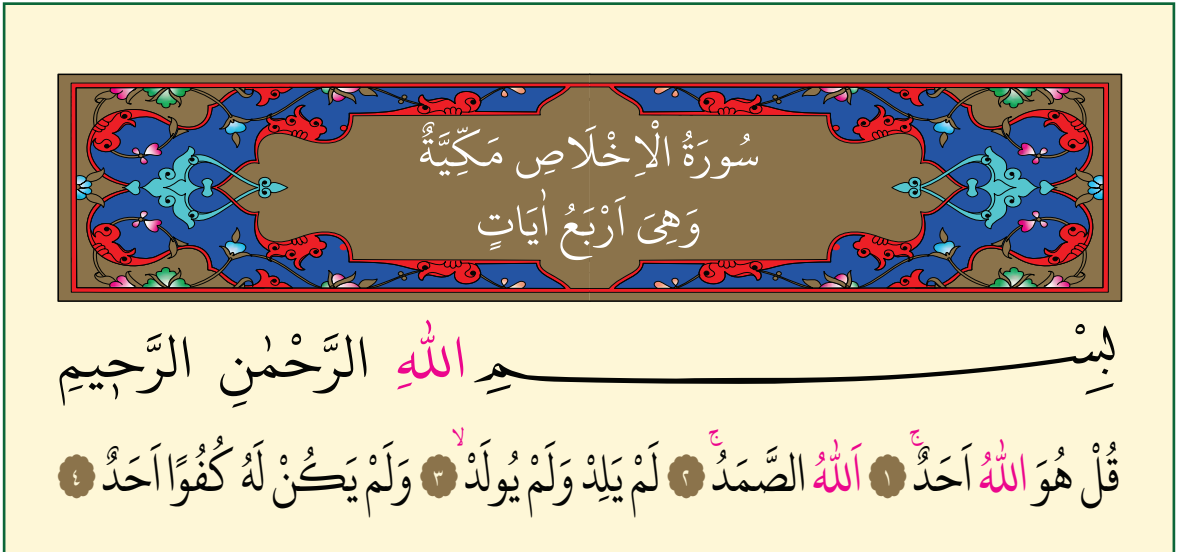 سُورَةُ الْاِخْلَاصِ مَكِّيَّةٌ
وَهِىَ اَرْبَعُ اٰيَاتٍ
بِسْمِ اللّٰهِ الرَّحْمٰنِ الرَّحٖيمِ
قُلْ هُوَ اللّٰهُ اَحَدٌۚ ١ اَللّٰهُ الصَّمَدُۚ ٢ لَمْ يَلِدْ وَلَمْ يُولَدْۙ ٣ وَلَمْ يَكُنْ لَهُ كُفُوًا اَحَدٌ ٤